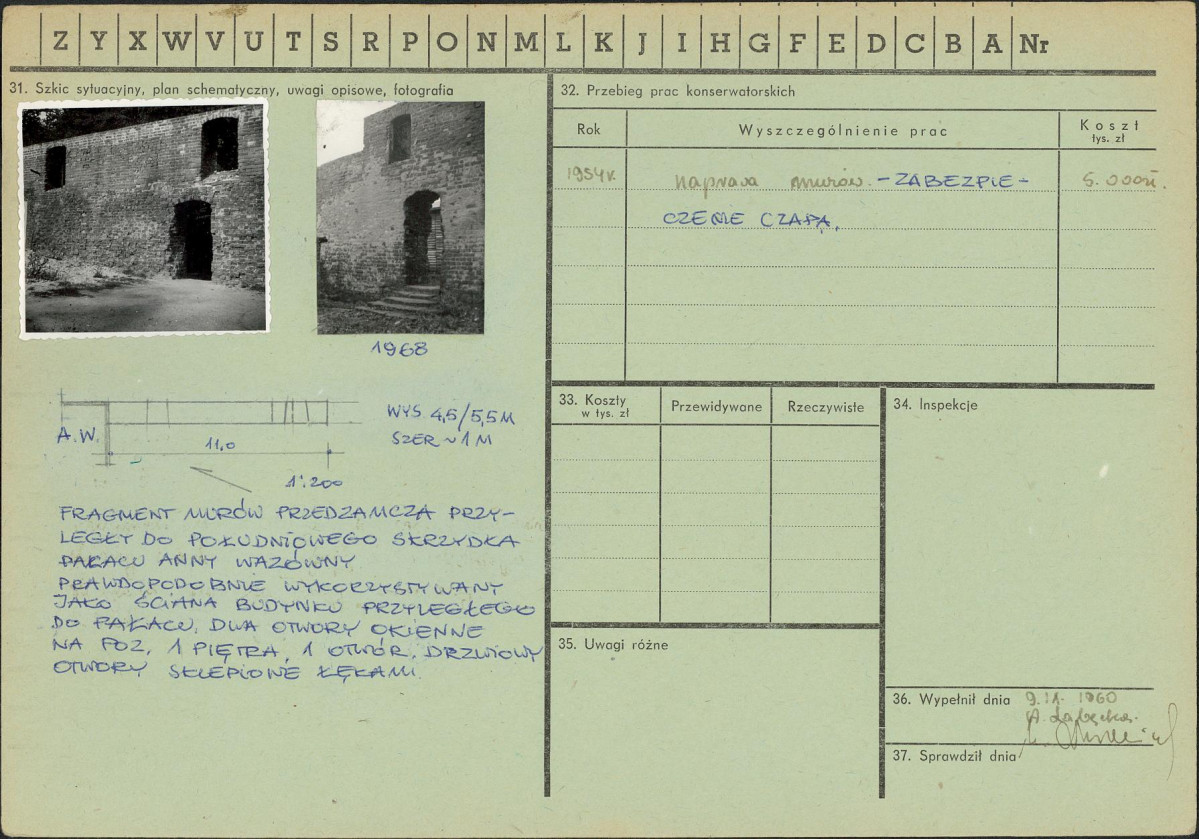 Z Y X W V U T S R P O N M L K J I H G F E D C B A Nr
31. Szkic sytuacyjny, plan schematyczny, uwagi opisowe, fotografia
1968
A.W.
11,0
1:200
WYS. 4,5/5,5 M
SZER ~ 1 M
FRAGMENT MURÓW PRZEDZAMCZA PRZY-
LEGŁY DO POŁUDNIOWEGO SKRZYDŁA
PAŁACU ANNY WAZÓWNY
PRAWDOPODOBNIE WYKORZYSTYWANY
JAKO ŚCIANA BUDYNKU PRZYLEGŁEGO
DO PAŁACU. DWA OTWORY OKIENNE
NA POZ. 1 PIĘTRA, 1 OTWÓR DRZWIOWY
OTWORY SKLEPIONE ŁĘKAMI.
32. Przebieg prac konserwatorskich
Rok Wyszczególnienie prac Koszt
tys. zł
1954r. naprawa murów. - ZABEZPIE- 5.000zł.
CZENIE CZAPĄ.
33. Koszty
w tys. zł
Przewidywane Rzeczywiste
34. Inspekcje
35. Uwagi różne
36. Wypełnił dnia 9.IX. 1960
37. Sprawdził dnia